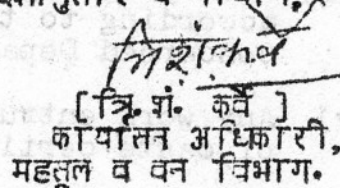 त्रिशंकर्वे
[ त्रि. शं. कर्वे ]
कार्यासन अधिकारी,
महसूल व वन विभाग.